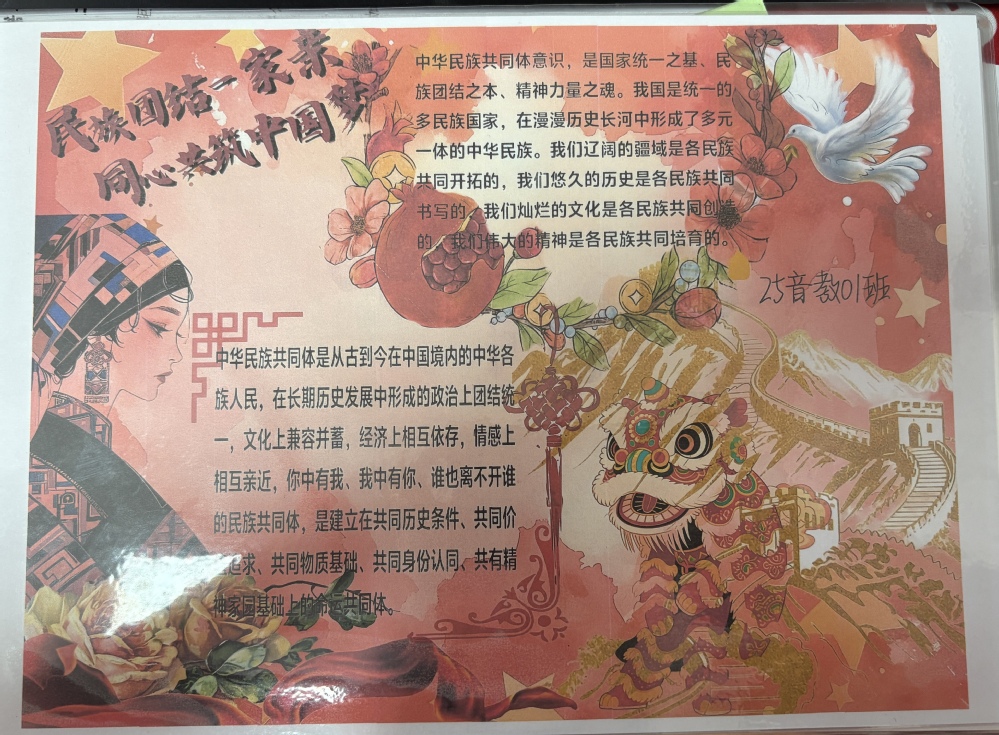 民族团结一家亲
同心共筑中国梦
中华民族共同体意识，是国家统一之基、民
族团结之本、精神力量之魂。我国是统一的
多民族国家，在漫漫历史长河中形成了多元
一体的中华民族。我们辽阔的疆域是各民族
共同开拓的，我们悠久的历史是各民族共同
书写的，我们灿烂的文化是各民族共同创造
的，我们伟大的精神是各民族共同培育的。
25音教01班
中华民族共同体是从古到今在中国境内的中华各
族人民，在长期历史发展中形成的政治上团结统
一，文化上兼容并蓄，经济上相互依存，情感上
相互亲近，你中有我、我中有你、谁也离不开谁
的民族共同体，是建立在共同历史条件、共同价
追求、共同物质基础、共同身份认同、共有精
神家园基础上的命运共同体。